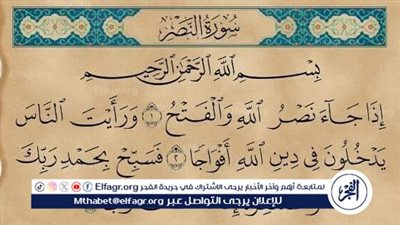 سُورَةُ النَّصْرِ
بِسْمِ اللَّهِ الرَّحْمَٰنِ الرَّحِيمِ
إِذَا جَآءَ نَصْرُ اللَّهِ وَالْفَتْحُ ۝١ وَرَأَيْتَ النَّاسَ
يَدْخُلُونَ فِي دِينِ اللَّهِ أَفْوَاجًا ۝٢ فَسَبِّحْ بِحَمْدِ رَبِّكَ
الفجر
لمتابعة أهم وآخر الأخبار يرجى الاشتراك في جريدة الفجر Elfagr.org
للإعلان يرجى التواصل عبر Mthabet@elfagr.org